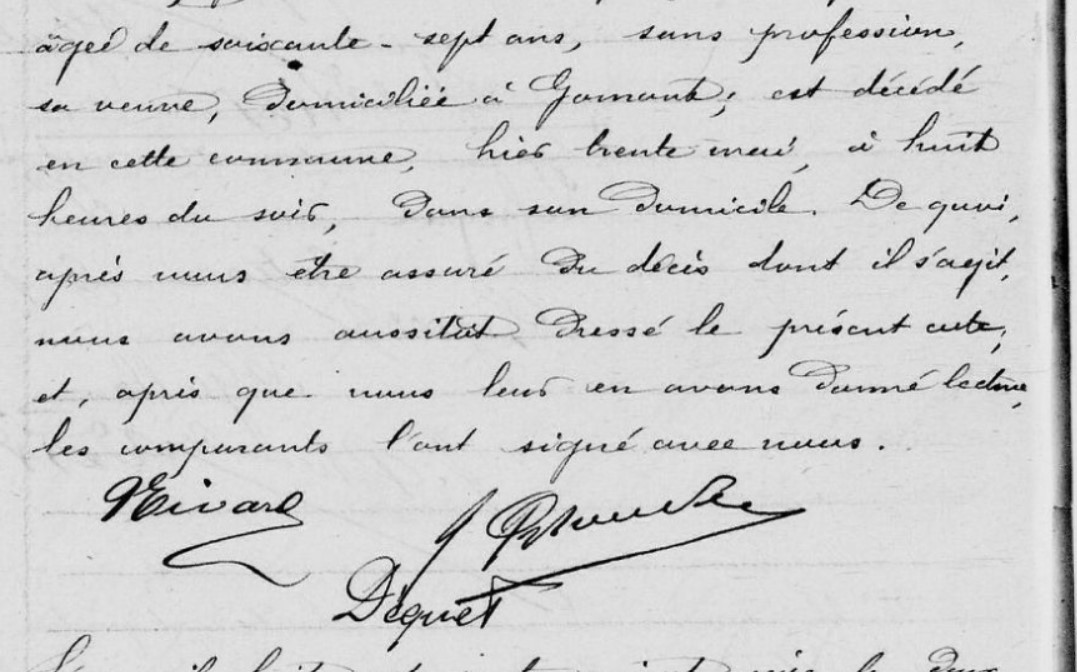 âgée de soixante-sept ans, sans profession,
sa veuve, domiciliée à Gomont; est décédé
en cette commune, hier trente mai, à huit
heures du soir, dans son domicile. De quoi,
après nous être assuré du décès dont il s'agit,
nous avons aussitôt dressé le présent acte,
et, après que nous leur en avons donné lecture,
les comparants l'ont signé avec nous.
Déquet